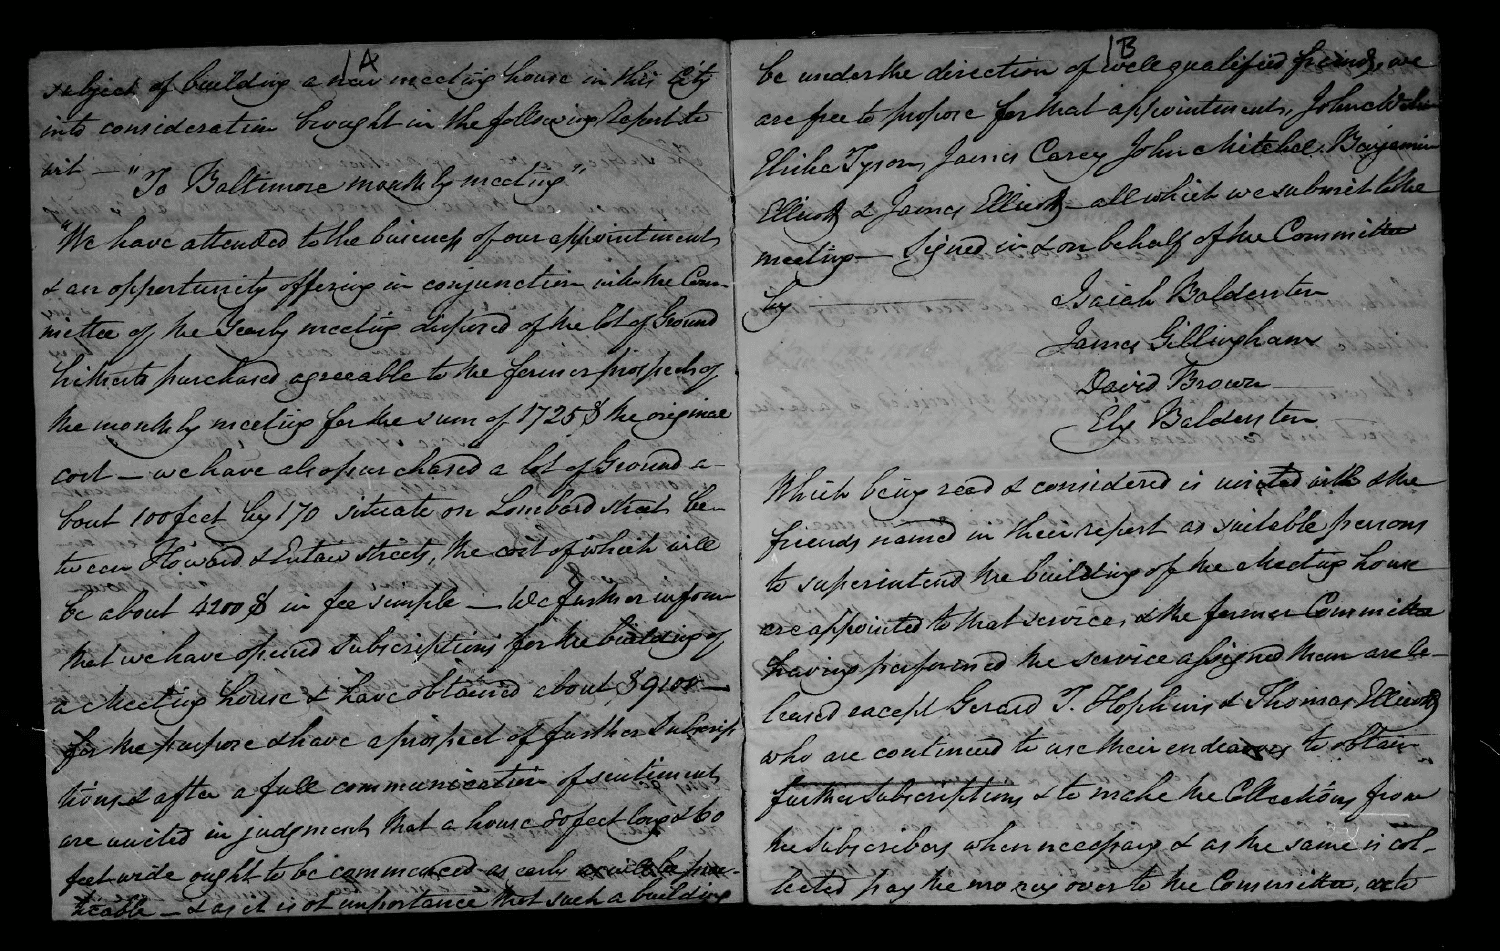 1A
subject of building a new meeting house in this City
into consideration brought in the following Report to
wit — "To Baltimore monthly meeting"
"We have attended to the business of our appointment
& an opportunity offering in conjunction with the Com-
mittee of the Yearly meeting disposed of the lot of Ground
hitherto purchased agreeable to the former prospect of
the monthly meeting for the sum of 1725$ the original
cost — we have also purchased a lot of Ground a-
bout 100 feet by 170 situate on Lombard street be-
tween Howard & Eutaw streets, the cost of which will
be about 4200$ in fee simple — We further inform
that we have opened subscriptions for the building of
a Meeting house & have obtained about $9100 —
for the purpose & have a prospect of further subscrip
tions & after a full communication of sentiment
are united in judgment that a house 80 feet long & 60
feet wide ought to be commenced as early as prac-
ticable — & as it is of importance that such a building
1B
be under the direction of well qualified friends, we
are free to propose for that appointment, John
Elisha Tyson, James Carey John Mitchel Benjamin
Ellicott & James Ellicott — all which we submit to the
meeting — Signed in & on behalf of the Committee
by
Isaiah Balderston
James Gillingham
David Brown
Ely Balderston
Which being read & considered is united with & the
friends named in their report as suitable persons
to superintend the building of the Meeting house
are appointed to that service, & the former Committee
having performed the service assigned them are re-
leased except Gerard T. Hopkins & Thomas Ellicott
who are continued to use their endeavors to obtain
further subscriptions & to make the Collections from
the subscribers when necessary & as the same is col-
lected pay the money over to the Committee, as to